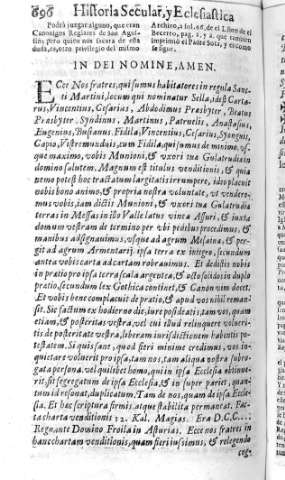 696 Historia Secular, y Eclesiastica
Podrà juzgar alguno, que eran
Canonigos Reglares de San Agus-
tin, pero quien nos sacara de essa
duda, es, otro privilegio del mismo
Archivo, a fol. 26. de el Libro de el
Becerro, pag. 1. y 2. que tambien
imprimiò el Padre Sota, y es como
se sigue.
IN DEI NOMINE, AMEN.
ECce Nos fratres, qui sumus habitatores in regula Sanc-
ti Martini, locum qui nominatur Sella, id est Carta-
rus, Vincentius, Cesarius, Abdolimus Presbyter, Beatus
Presbyter, Syndinus, Martinus, Patruelis, Anastasius,
Eugenius, Bustanus, Fidila, Vincentius, Cesarius, Syonguis,
Capio, Vistremundus, cum Fidila, qui sumus de minimo, vs-
que maximo, vobis Munioni, & vxori tuæ Gulatrudia in
domino salutem. Magnum est titulus venditionis, & quia
nemo potest hoc tractatum largitatis irrumpere, ideo placuit
vobis bono animo, & propria nostra voluntate, vt vendere-
mus vobis, iam dictis Munioni, & vxori tuæ Gulatrudia
terras in Messas in illo Valle latus vinea Assuri, & iuxta
domum vestram de termino per vbi pedibus procedimus, &
manibus adsignavimus, vsque ad agrum Mesaina, & per-
git ad agrum Armentarij ipsa terra ex integro, secundum
antea vobis carta ad cartam roboravimus. Et dedistis nobis
in pratio pro ipsa terra scala argentea, & octo solidos in duplo
pratio, secundum lex Gothica continet, & Canonum docet.
Et vobis bene complacuit de pratio, & apud vos nihil reman-
sit. Sic factum ex hodierno die, iure possideatis, tam vos, quam
etiam, & posteritas vestra, vel cui illud relinquere volueri-
tis de posteritate vestra, liberam iurisdictionem habeatis po-
testatem. Si quis sanè, quod fieri minime credimus, vos in-
quietare voluerit pro ipsa, tam nos, tam aliqua nostra subro-
gat apersona, vel quislibet homo, qui in ipsa Ecclesia obtinue-
rit, sit segregatum de ipsa Ecclesia, & in super pariet, quan-
tum id resonat, duplicatum. Tam de nos, quam de ipsa Eccle-
sia. Et hæc scriptura firmis, atque stabilita permaneat. Fac-
ta charta venditionis 12. Kal. Magias. Era D.CCC....
Regnante Domino Froila in Asturias. Ecce nos fratres in
hanc chartam venditionis, quam fieri iussimus, & relegendo
cog-